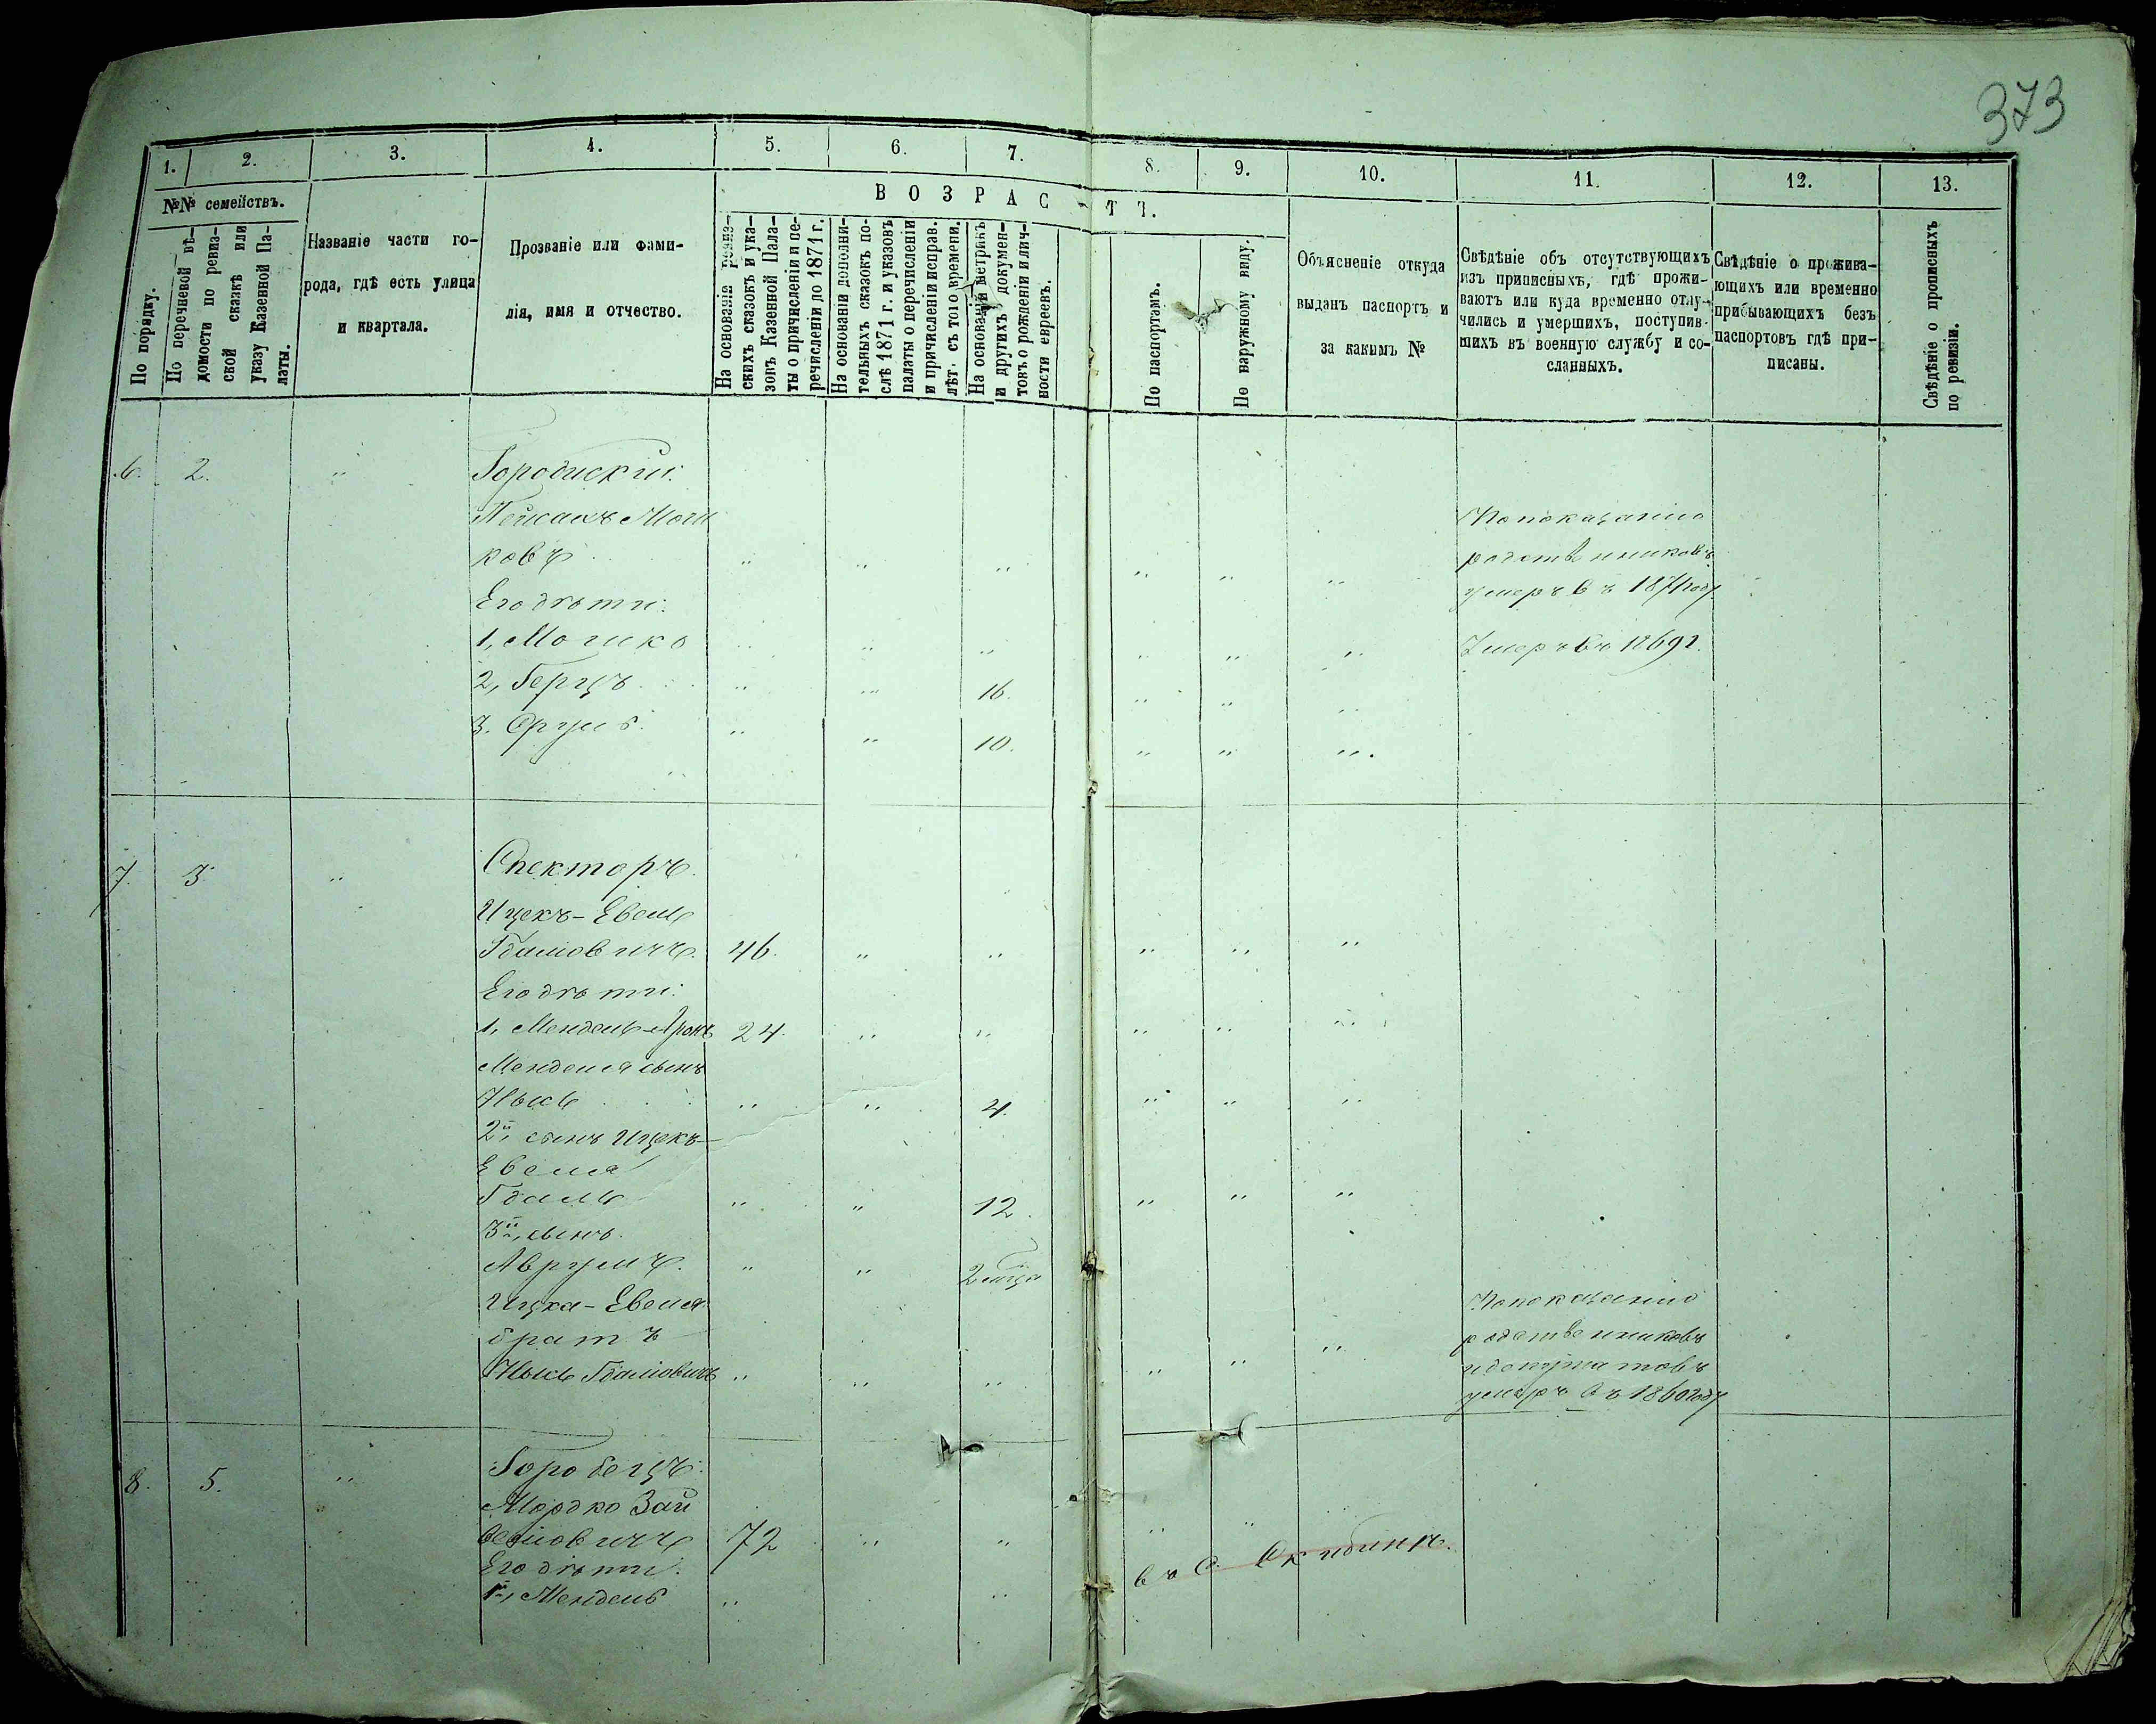 373
1. 2. 3. 4. 5. 6. 7. 8. 9. 10. 11. 12. 13.
№№ семействъ.
По порядку.
По перечневой вѣ-
домости по ревиз-
ской сказкѣ или
указу Казенной Па-
латы.
Названіе части го-
рода, гдѣ есть улица
и квартала.
Прозваніе или фами-
лія, имя и отчество.
ВОЗРАСТЪ.
На основаніи ревиз-
скихъ сказокъ и ука-
зокъ Казенной Пала-
ты о причисленіи и пе-
речисленіи до 1871 г.
На основаніи дополни-
тельныхъ сказокъ по-
слѣ 1871 г. и указовъ
палаты о перечисленіи
и причисленіи исправ.
лѣт. съ того времени.
На основаніи метрикъ
и другихъ докумен-
товъ о рожденіи и лич-
ности евреевъ.
По паспортамъ.
По наружному виду.
Объясненіе откуда
выданъ паспортъ и
за какимъ №
Свѣдѣніе объ отсутствующихъ
изъ приписныхъ, гдѣ прожи-
ваютъ или куда временно отлу-
чились и умершихъ, поступив-
шихъ въ военную службу и со-
сланныхъ.
Свѣдѣніе о прожива-
ющихъ или временно
прибывающихъ безъ
паспортовъ гдѣ при-
писаны.
Свѣдѣніе о прописныхъ
по ревизіи.
6. 2. " Городискій.
Пейсахъ Мош
ковъ " " " " " "
По показанію
родственниковъ
умеръ въ 1871 году
Его дѣти:
1, Мошко " " " " " " Умеръ въ 1869 г.
2, Герцъ " " 16. " " "
3. Сруль. " " 10. " " "
7. 3. " Спекторъ.
Ицекъ-Евель
Гдаліовичъ. 46. " " " " "
Его дѣти:
1, Мендель-Аронъ 24. " " " " "
Менделя сынъ
Нысь " " 4. " " "
2й, сынъ Ицекъ-
Евеля
Гдаль " " 12. " " "
3й, сынъ.
Аврумъ. " " 2 мѣсца
Ицка-Евеля
братъ
Нысь Гдаліовичъ " " " " " "
По показанію
родственниковъ
и документовъ
умеръ въ 1860 году
8. 5. " Горобецъ.
Мордко Зай
веліовичъ 72 " " " "
Его дѣти:
1, Мендель " "
въ С.